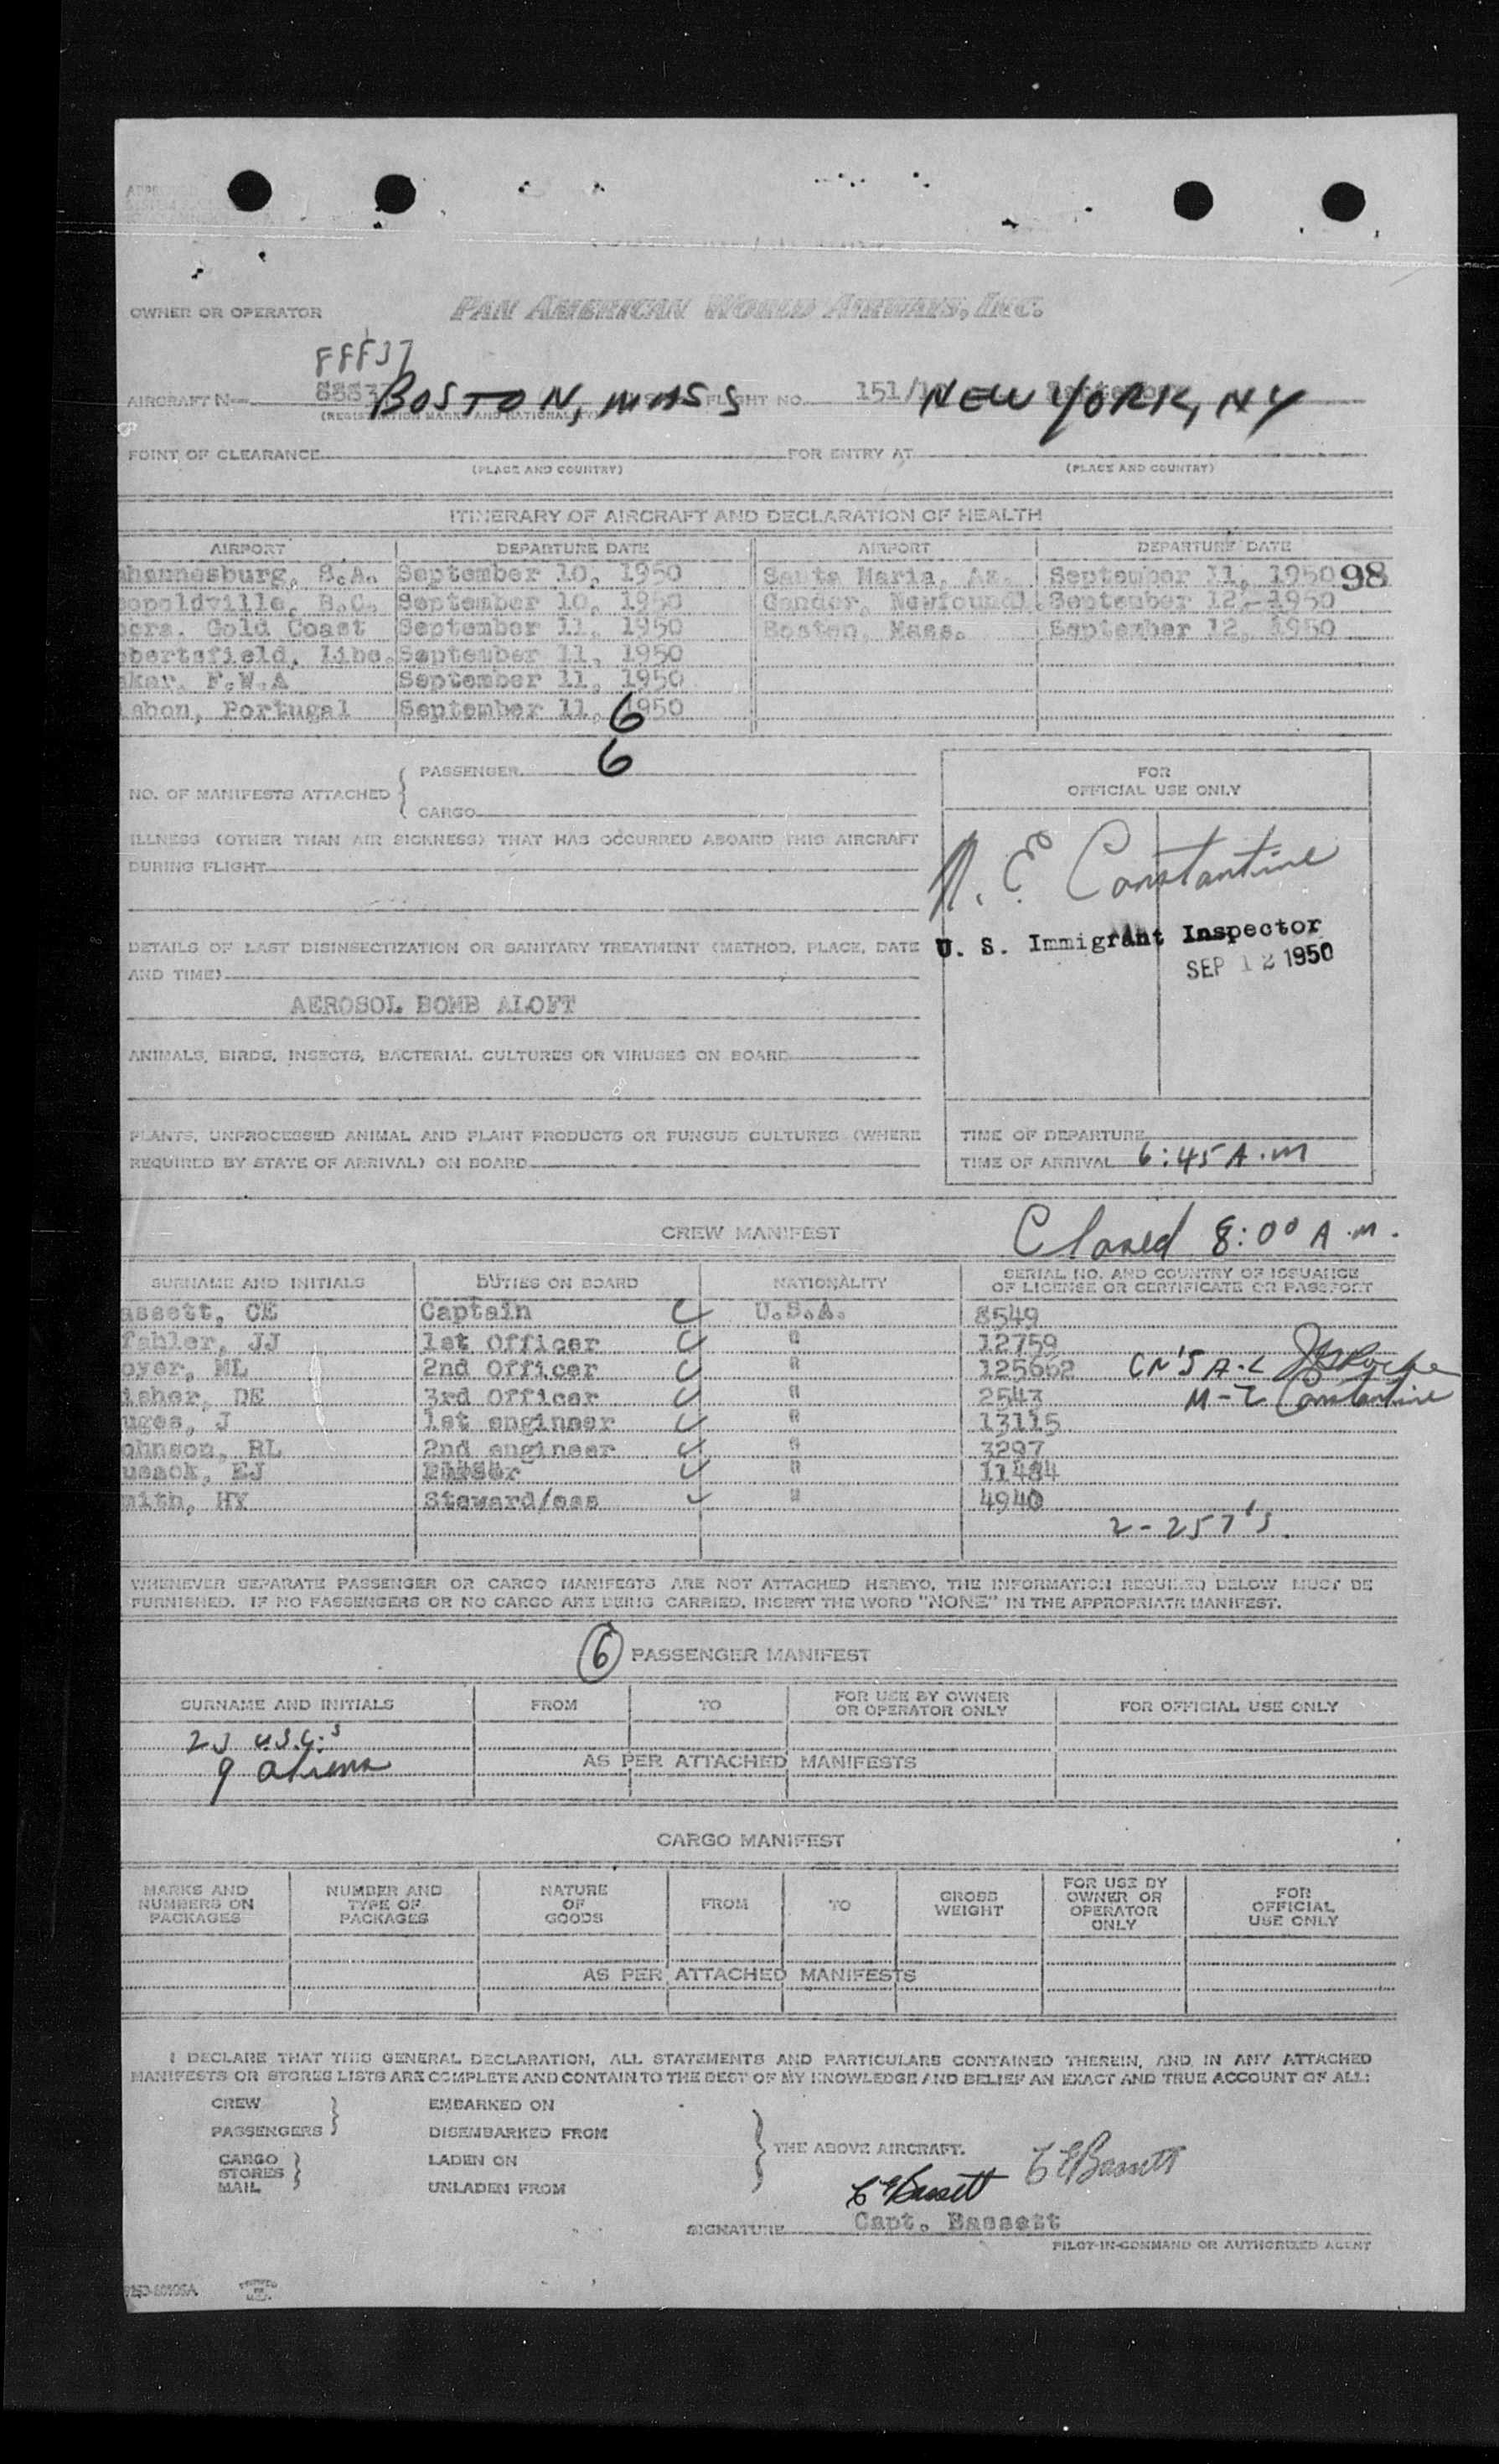 OWNER OR OPERATOR PAN AMERICAN WORLD AIRWAYS, INC.
AIRCRAFT N— BOSTON, MASS FLIGHT NO. 151/ NEW YORK, NY
(REGISTRATION MARKS AND NATIONALITY)
POINT OF CLEARANCE FOR ENTRY AT
(PLACE AND COUNTRY) (PLACE AND COUNTRY)
ITINERARY OF AIRCRAFT AND DECLARATION OF HEALTH
AIRPORT DEPARTURE DATE AIRPORT DEPARTURE DATE
hannesburg, S.A. September 10, 1950 Santa Maria, Az. September 11, 1950 98
opoldville, B.C. September 10, 1950 Gander, Newfoundl. September 12, 1950
ccra, Gold Coast September 11, 1950 Boston, Mass. September 12, 1950
obertsfield, Libe. September 11, 1950
akar, F.W.A September 11, 1950
isbon, Portugal September 11, 1950
6
PASSENGER 6
NO. OF MANIFESTS ATTACHED
CARGO
FOR
OFFICIAL USE ONLY
ILLNESS (OTHER THAN AIR SICKNESS) THAT HAS OCCURRED ABOARD THIS AIRCRAFT
DURING FLIGHT
N. E Constantine
DETAILS OF LAST DISINSECTIZATION OR SANITARY TREATMENT (METHOD, PLACE, DATE
AND TIME)
U. S. Immigrant Inspector
SEP 12 1950
AEROSOL BOMB ALOFT
ANIMALS, BIRDS, INSECTS, BACTERIAL CULTURES OR VIRUSES ON BOARD
PLANTS, UNPROCESSED ANIMAL AND PLANT PRODUCTS OR FUNGUS CULTURES (WHERE
REQUIRED BY STATE OF ARRIVAL) ON BOARD
TIME OF DEPARTURE
TIME OF ARRIVAL 6:45 A.M
CREW MANIFEST Closed 8:00 A.M.
SURNAME AND INITIALS DUTIES ON BOARD NATIONALITY SERIAL NO. AND COUNTRY OF ISSUANCE
OF LICENSE OR CERTIFICATE OR PASSPORT
assett, CE Captain U.S.A. 8549
fahler, JJ 1st Officer " 12759
oyer, ML 2nd Officer " 125662
isher, DE 3rd Officer " 2543 M-Z Constantine
uges, J 1st engineer " 13115
ohnson, RL 2nd engineer " 3297
usack, EJ " 11484
mith, HY Steward/ess " 4940
2-257's.
WHENEVER SEPARATE PASSENGER OR CARGO MANIFESTS ARE NOT ATTACHED HERETO, THE INFORMATION REQUIRED BELOW MUST BE
FURNISHED. IF NO PASSENGERS OR NO CARGO ARE BEING CARRIED, INSERT THE WORD "NONE" IN THE APPROPRIATE MANIFEST.
6 PASSENGER MANIFEST
SURNAME AND INITIALS FROM TO FOR USE BY OWNER
OR OPERATOR ONLY FOR OFFICIAL USE ONLY
U.S.C.'s
9 aliens AS PER ATTACHED MANIFESTS
CARGO MANIFEST
MARKS AND
NUMBERS ON
PACKAGES
NUMBER AND
TYPE OF
PACKAGES
NATURE
OF
GOODS
FROM
TO
GROSS
WEIGHT
FOR USE BY
OWNER OR
OPERATOR
ONLY
FOR
OFFICIAL
USE ONLY
AS PER ATTACHED MANIFESTS
I DECLARE THAT THIS GENERAL DECLARATION, ALL STATEMENTS AND PARTICULARS CONTAINED THEREIN, AND IN ANY ATTACHED
MANIFESTS OR STORES LISTS ARE COMPLETE AND CONTAIN TO THE BEST OF MY KNOWLEDGE AND BELIEF AN EXACT AND TRUE ACCOUNT OF ALL:
CREW EMBARKED ON
PASSENGERS DISEMBARKED FROM
THE ABOVE AIRCRAFT.
CARGO LADEN ON
STORES
MAIL UNLADEN FROM
C E Bassett C E Bassett
SIGNATURE Capt. Bassett
PILOT-IN-COMMAND OR AUTHORIZED AGENT